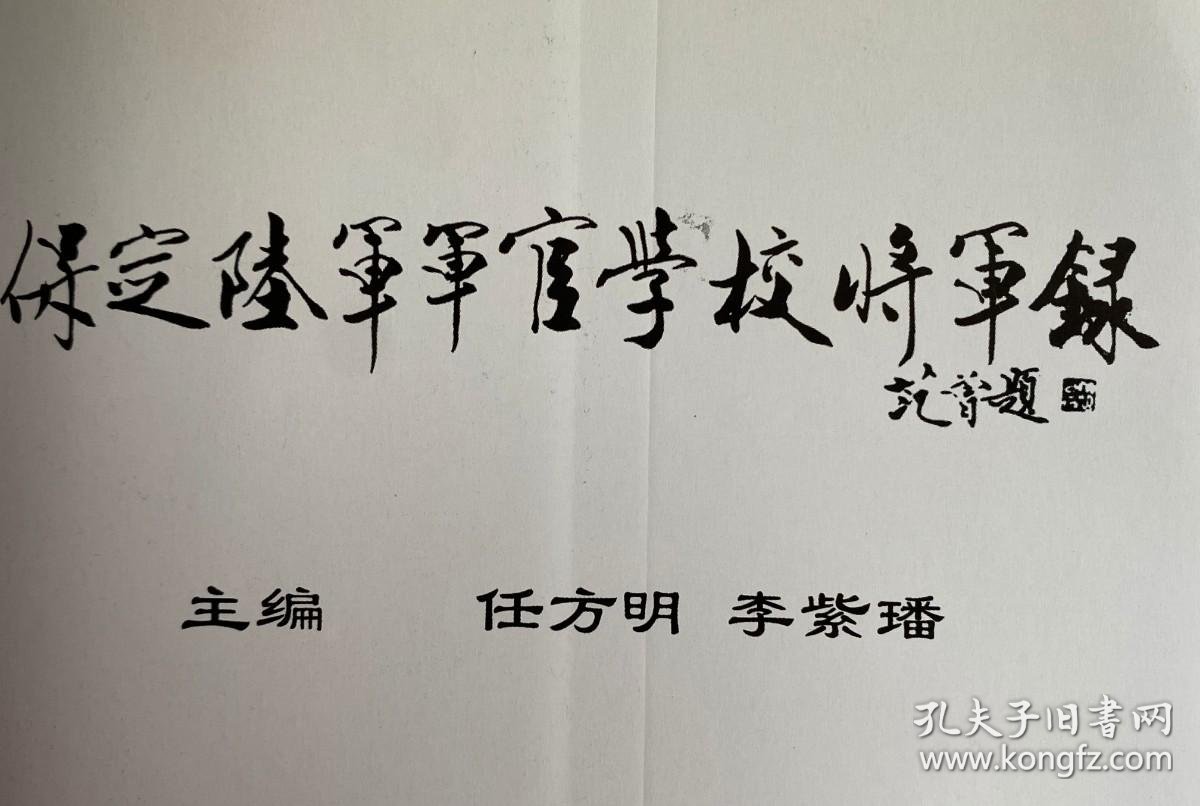 保定陸軍軍官学校将軍録
范曾題
主编 任方明 李紫璠
孔夫子旧書网
www.kongfz.com